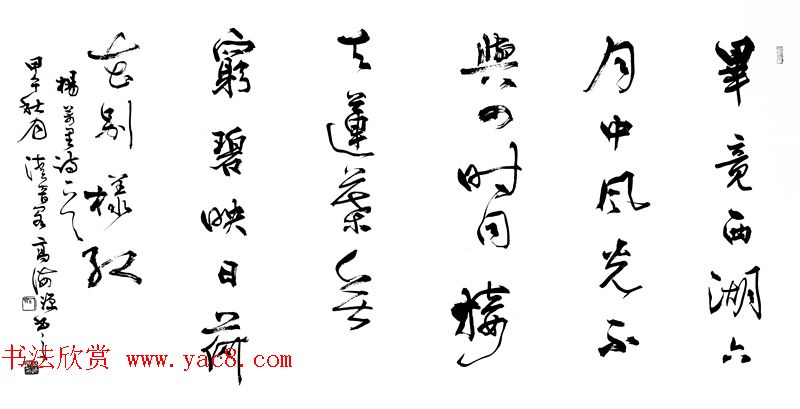 畢竟西湖六
月中风光不
與四时同接
天蓮葉無
窮碧映日荷
花别樣红
楊萬里诗一首
甲午秋月
书法欣赏 www.yac8.com